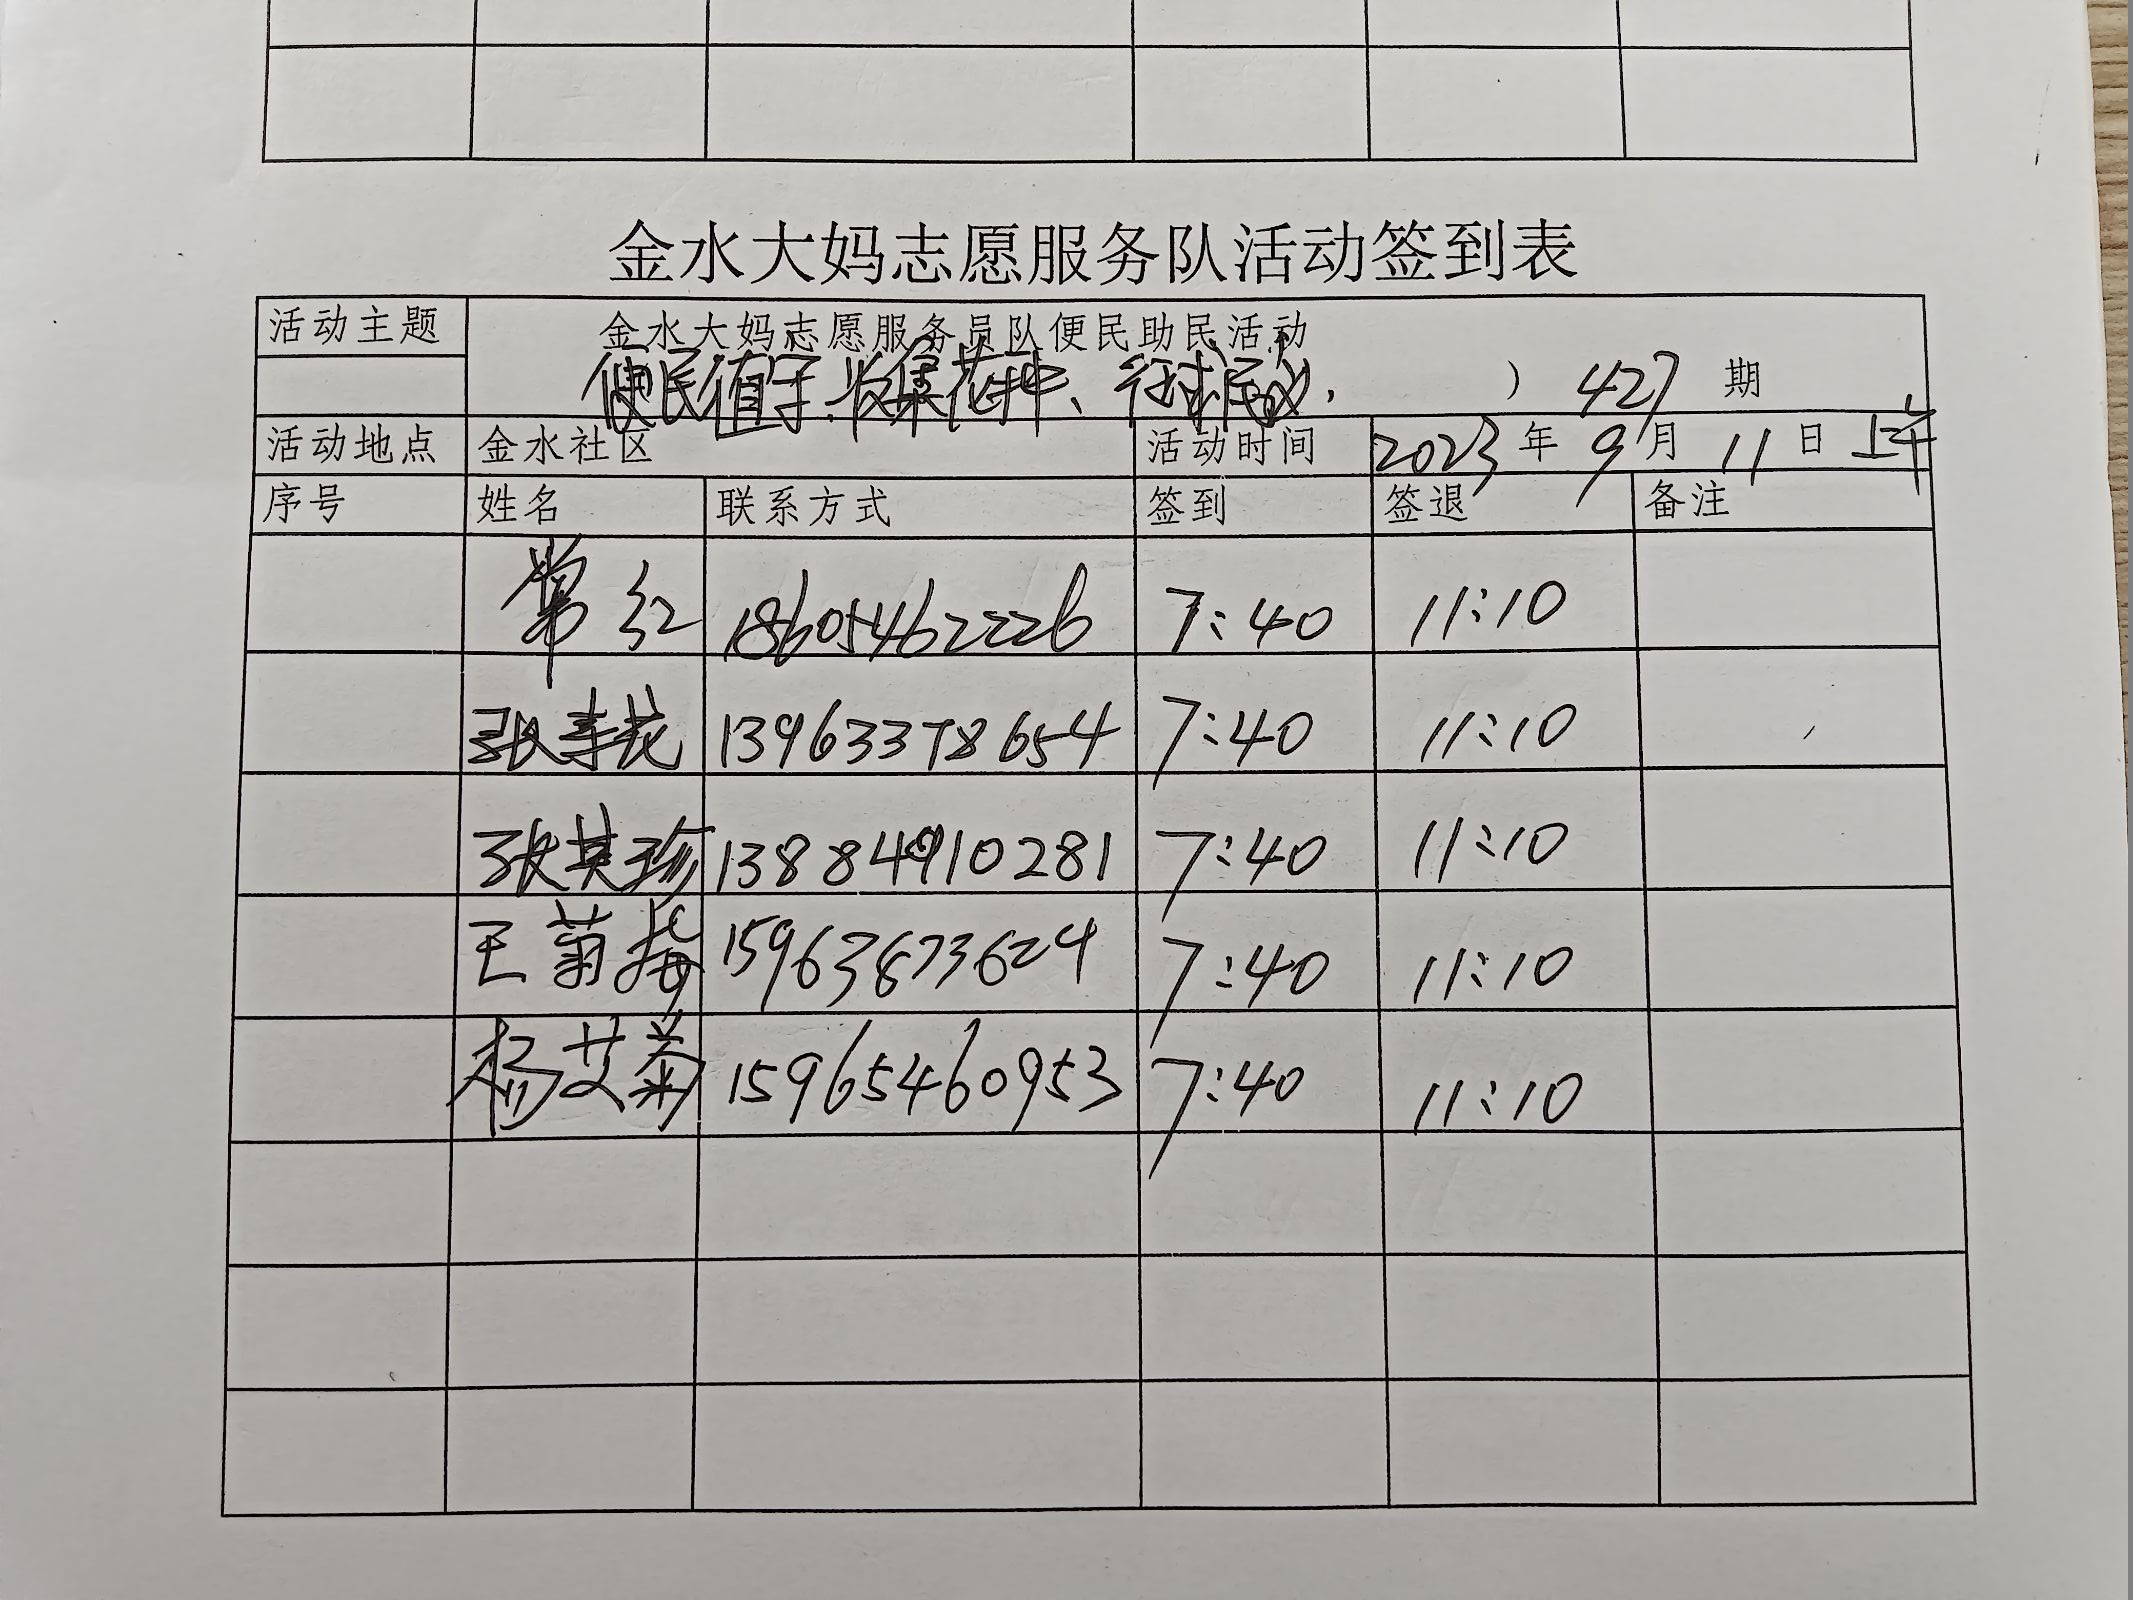 金水大妈志愿服务队活动签到表
活动主题 金水大妈志愿服务员队便民助民活动
便民值守、收集花种、征求民意, ) 427 期
活动地点 金水社区 活动时间 2023 年 9 月 11 日 上午
序号 姓名 联系方式 签到 签退 备注
常红 18605462226 7:40 11:10
张 13963378654 7:40 11:10
张英珍 13884910281 7:40 11:10
王菊梅 15963873624 7:40 11:10
杨艾菊 15965460953 7:40 11:10